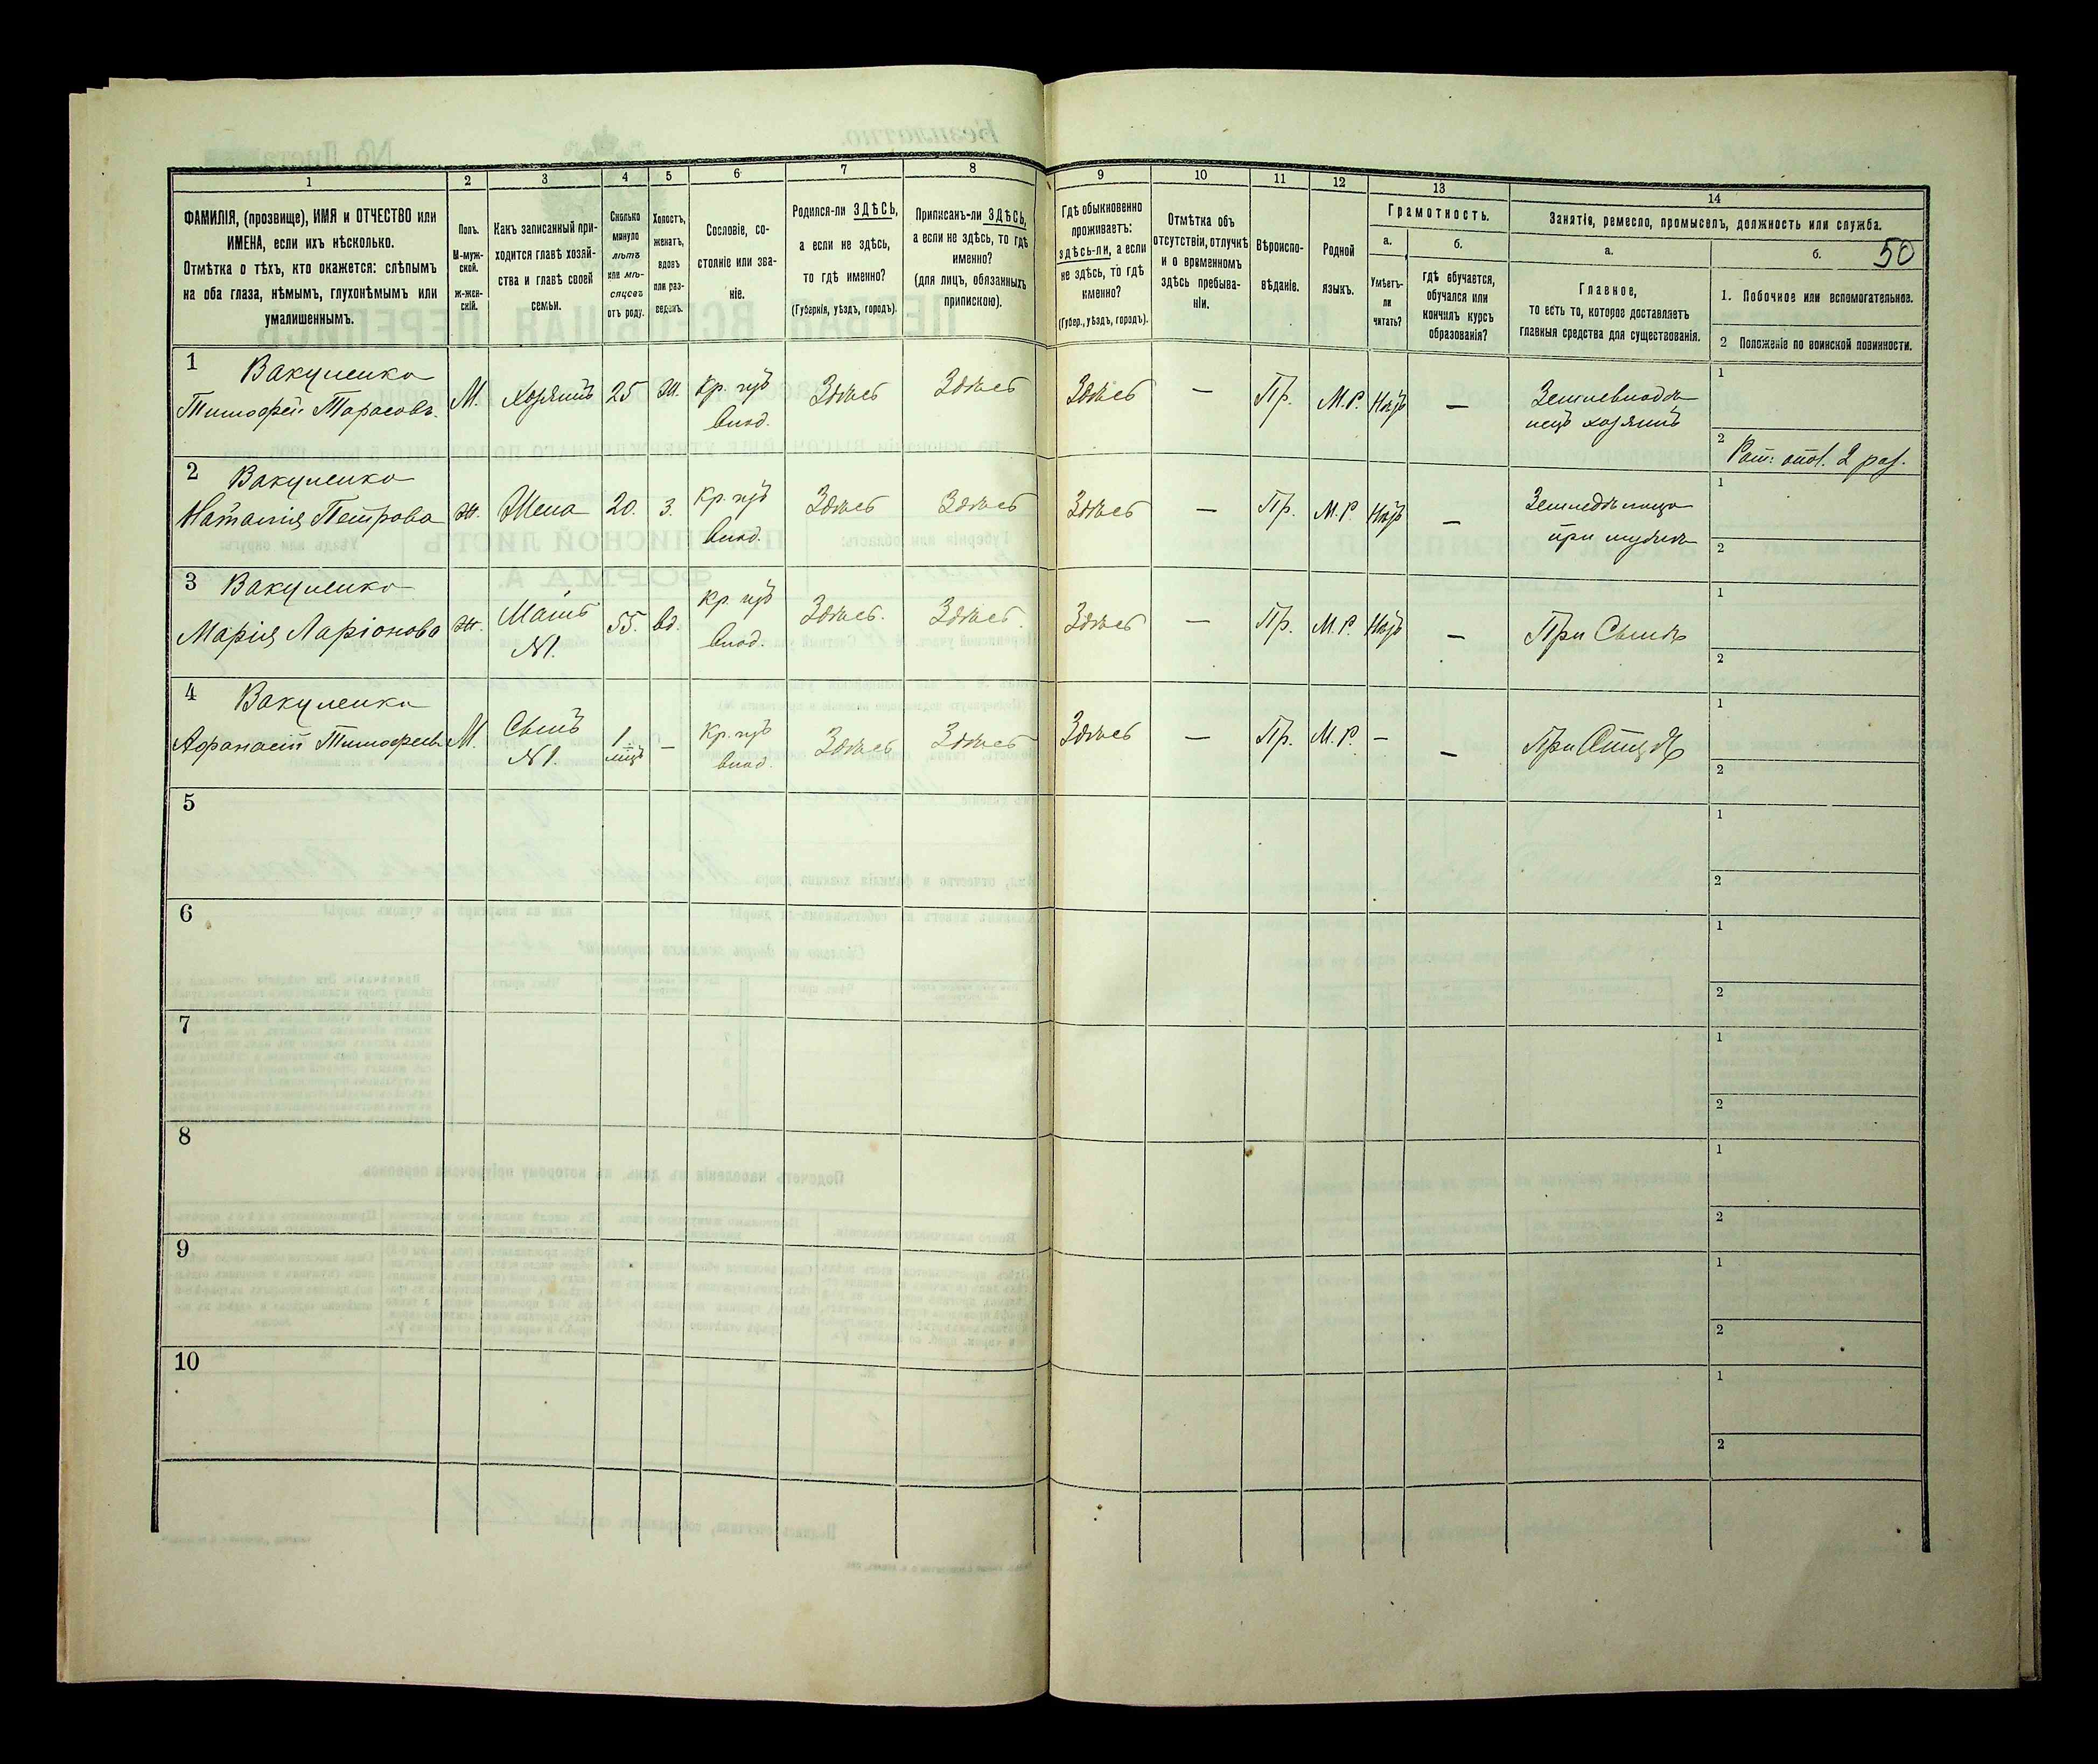 1
2
3
4
5
6
7
8
9
10
11
12
13
14
ФАМИЛІЯ, (прозвище), ИМЯ и ОТЧЕСТВО или
ИМЕНА, если ихъ нѣсколько.
Отмѣтка о тѣхъ, кто окажется: слѣпымъ
на оба глаза, нѣмымъ, глухонѣмымъ или
умалишеннымъ.
Полъ.
М-муж-
ской.
Ж-жен-
скій.
Какъ записанный при-
ходится главѣ хозяй-
ства и главѣ своей
семьи.
Сколько
минуло
лѣтъ
или мѣ-
сяцевъ
отъ роду.
Холостъ,
женатъ,
вдовъ
или раз-
веденъ.
Сословіе, со-
стояніе или зва-
ніе.
Родился-ли ЗДѢСЬ,
а если не здѣсь,
то гдѣ именно?
(Губернія, уѣздъ, городъ).
Приписанъ-ли ЗДѢСЬ,
а если не здѣсь, то гдѣ
именно?
(для лицъ, обязанныхъ
припискою).
Гдѣ обыкновенно
проживаетъ:
здѣсь-ли, а если
не здѣсь, то гдѣ
именно?
(Губер., уѣздъ, городъ).
Отмѣтка объ
отсутствіи, отлучкѣ
и о временномъ
здѣсь пребыва-
ніи.
Вѣроиспо-
вѣданіе.
Родной
языкъ.
Грамотность.
а.
Умѣетъ-
ли
читать?
б.
гдѣ обучается,
обучался или
кончилъ курсъ
образованія?
Занятіе, ремесло, промыселъ, должность или служба.
а.
Главное,
то есть то, которое доставляетъ
главныя средства для существованія.
б.
50
1. Побочное или вспомогательное.
2 Положеніе по воинской повинности.
1 Вакуленко
Тимофей Тарасовъ.
М.
Хозяинъ
25
Ж.
Кр. изъ
влад.
Здѣсь
Здѣсь
Здѣсь
—
Пр.
М.Р.
Нѣтъ
—
Землевладѣ
лецъ хозяинъ
1
2 Рат. опол. 2 раз.
2 Вакуленко
Наталія Петрова
Ж.
Жена
20.
З.
Кр. изъ
влад.
Здѣсь
Здѣсь
Здѣсь
—
Пр.
М.Р.
Нѣтъ
—
Земледѣлица
при мужѣ
1
2
3 Вакуленко
Марія Ларіонова
Ж.
Мать
№1.
55.
Вд.
Кр. изъ
влад.
Здѣсь.
Здѣсь.
Здѣсь
—
Пр.
М.Р.
Нѣтъ
—
При Сынѣ
1
2
4 Вакуленко
Афанасій Тимофеевъ
М.
Сынъ
№1.
1
мцъ
—
Кр. изъ
влад.
Здѣсь
Здѣсь
Здѣсь
—
Пр.
М.Р.
—
—
При Отцѣ
1
2
5
1
2
6
1
2
7
1
2
8
1
2
9
1
2
10
1
2